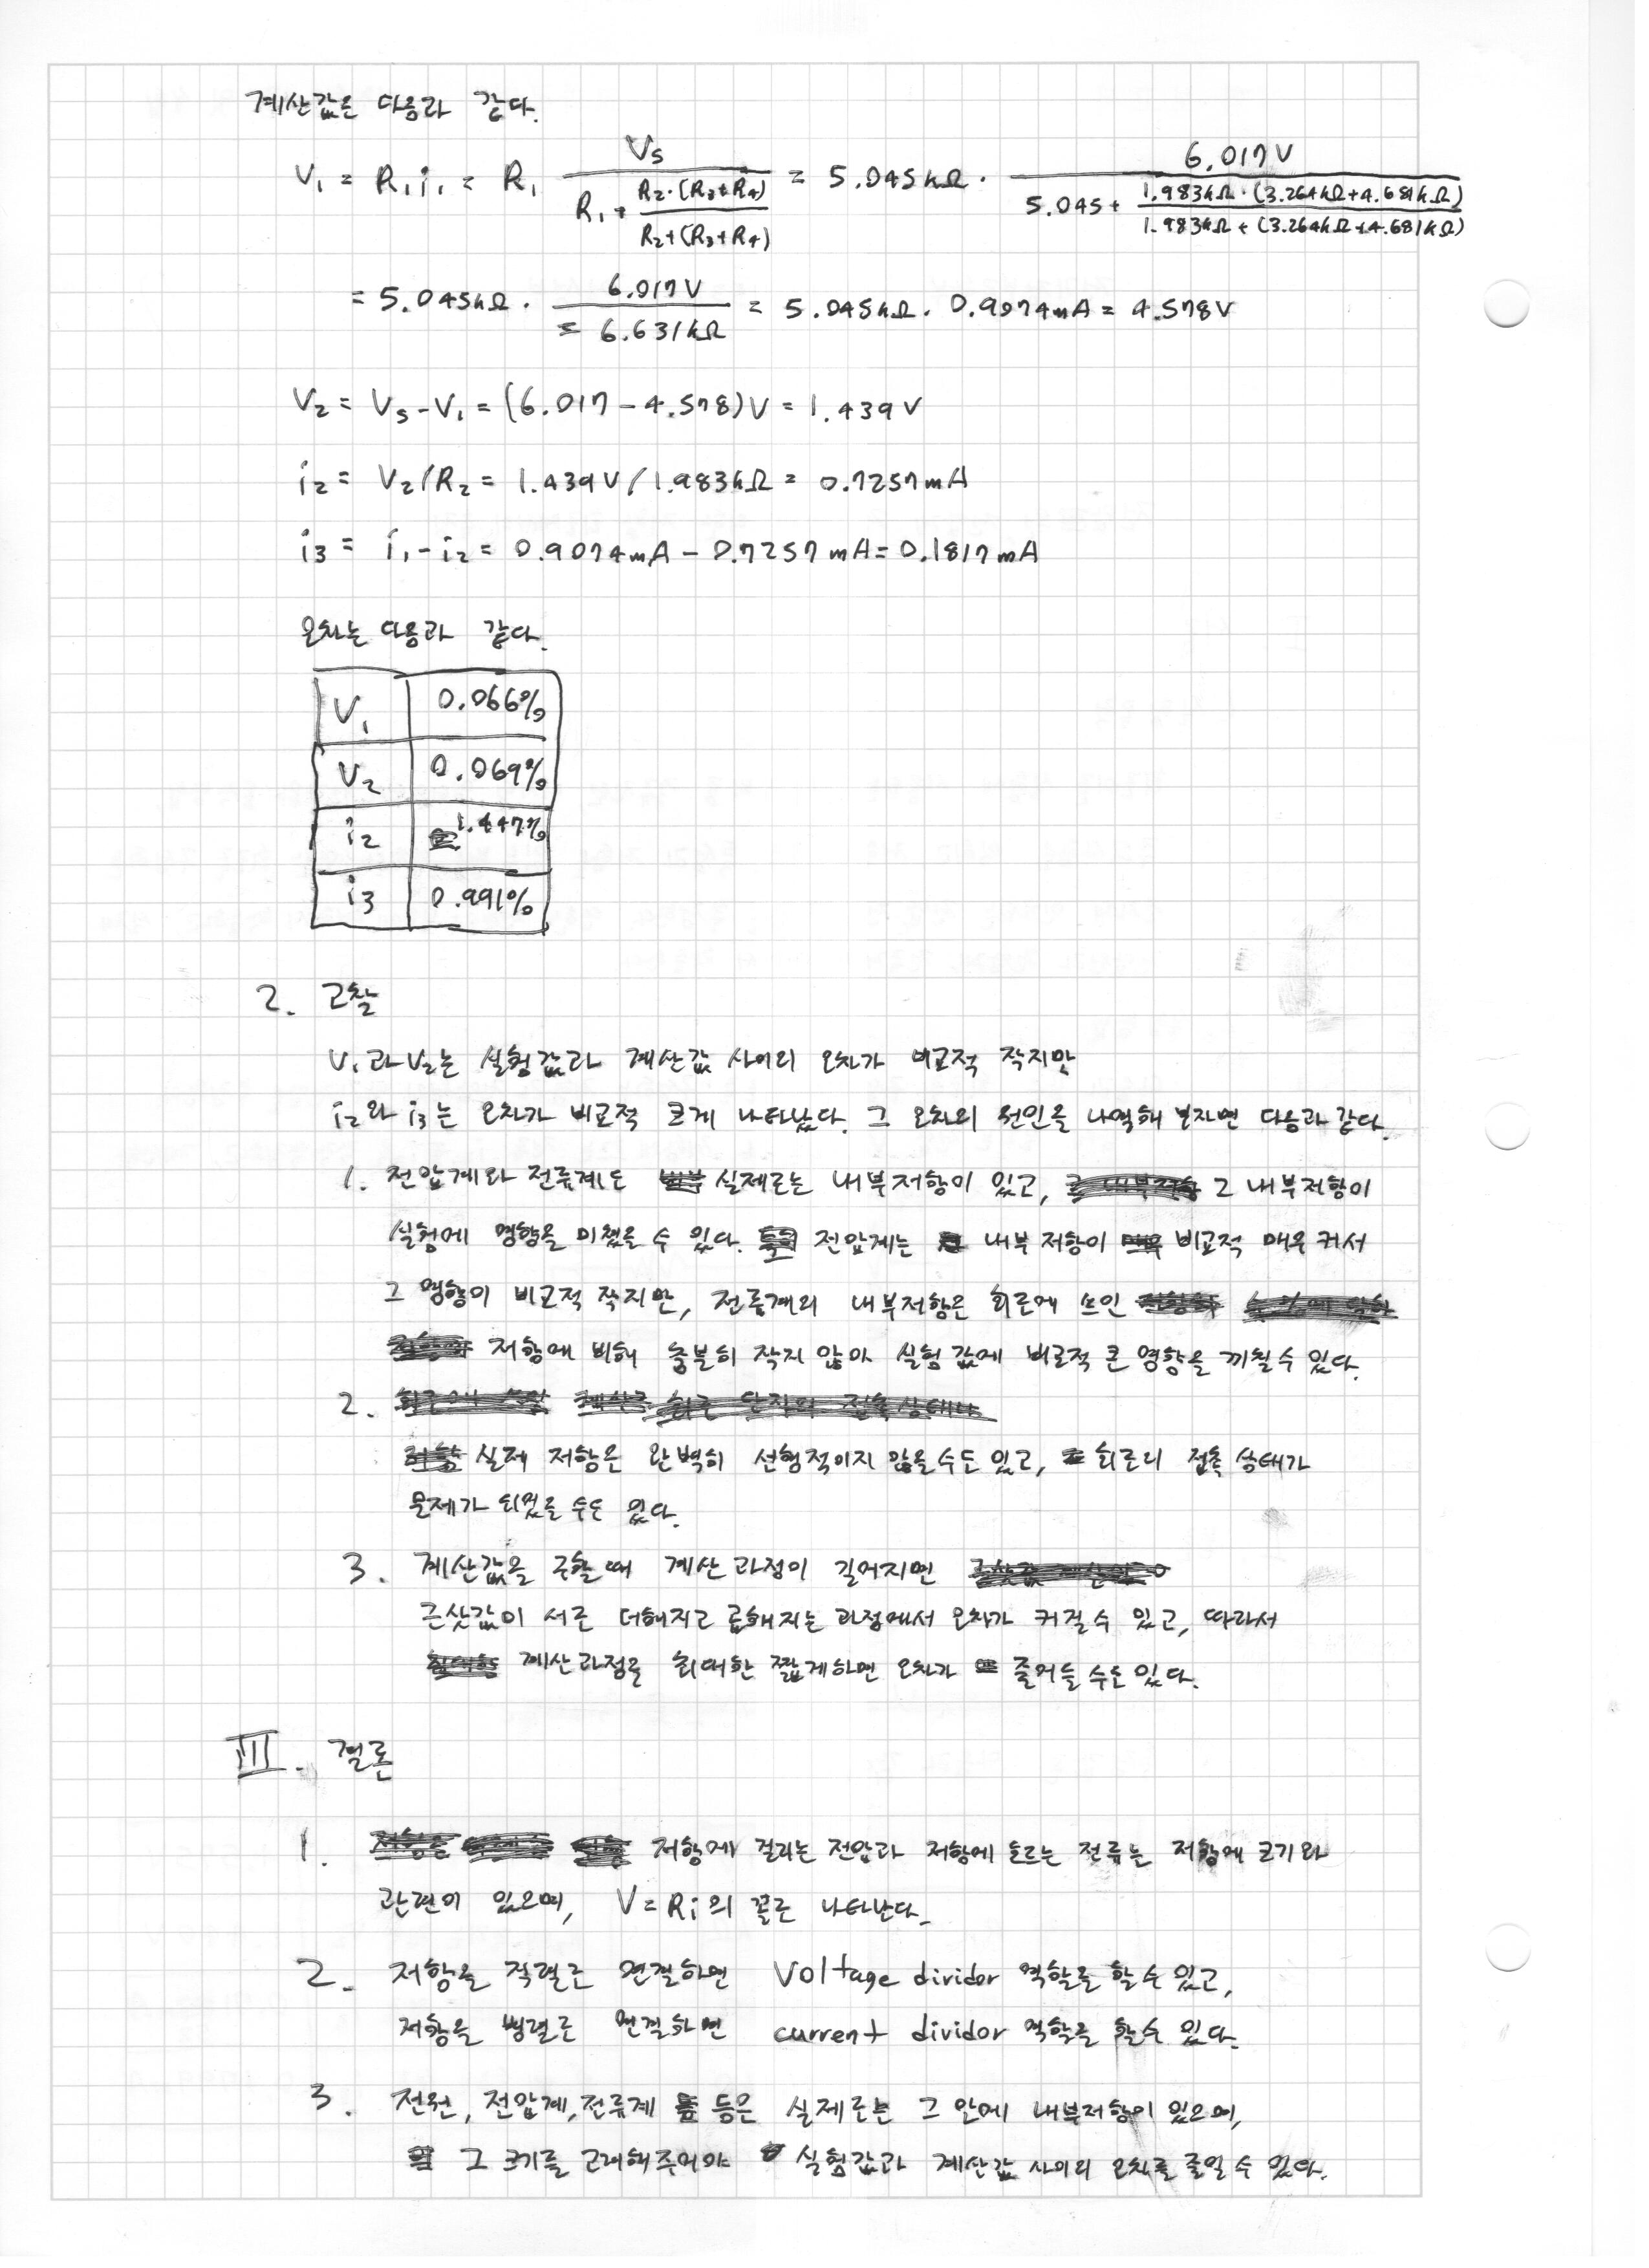 계산값은 다음과 같다.
V₁ = R₁i₁ = R₁ Vs / (R₁ + R₂·(R₃+R₄) / (R₂+(R₃+R₄))) = 5.045kΩ · 6.017V / (5.045 + 1.983kΩ·(3.264kΩ+4.681kΩ) / (1.983kΩ+(3.264kΩ+4.681kΩ)))
= 5.045kΩ · 6.017V / 6.631kΩ = 5.045kΩ · 0.9074mA = 4.578V
V₂ = Vs - V₁ = (6.017 - 4.578)V = 1.439V
i₂ = V₂/R₂ = 1.439V/1.983kΩ = 0.7257mA
i₃ = i₁ - i₂ = 0.9074mA - 0.7257mA = 0.1817mA
오차는 다음과 같다.
V₁ 0.066%
V₂ 0.069%
i₂ 1.447%
i₃ 0.991%
2. 고찰
V₁과 V₂는 실험값과 계산값 사이의 오차가 비교적 작지만
i₂와 i₃는 오차가 비교적 크게 나타났다. 그 오차의 원인을 나열해 보자면 다음과 같다.
1. 전압계와 전류계도 실제로는 내부저항이 있고, 그 내부저항이
실험에 영향을 미쳤을 수 있다. 전압계는 내부 저항이 비교적 매우 커서
그 영향이 비교적 작지만, 전류계의 내부저항은 회로에 쓰인
저항에 비해 충분히 작지 않아 실험 값에 비교적 큰 영향을 끼칠 수 있다.
2.
실제 저항은 완벽히 선형적이지 않을 수도 있고, 회로의 접촉 상태가
문제가 되었을 수도 있다.
3. 계산값을 구할 때 계산 과정이 길어지면
근삿값이 서로 더해지고 곱해지는 과정에서 오차가 커질 수 있고, 따라서
계산과정을 최대한 짧게하면 오차가 줄어들 수도 있다.
III. 결론
1. 저항에 걸리는 전압과 저항에 흐르는 전류는 저항에 크기와
관련이 있으며, V=Ri의 꼴로 나타난다.
2. 저항을 직렬로 연결하면 Voltage dividor 역할을 할 수 있고,
저항을 병렬로 연결하면 current dividor 역할을 할 수 있다.
3. 전원, 전압계, 전류계 등은 실제로는 그 안에 내부저항이 있으며,
그 크기를 고려해주어야 실험값과 계산값 사이의 오차를 줄일 수 있다.